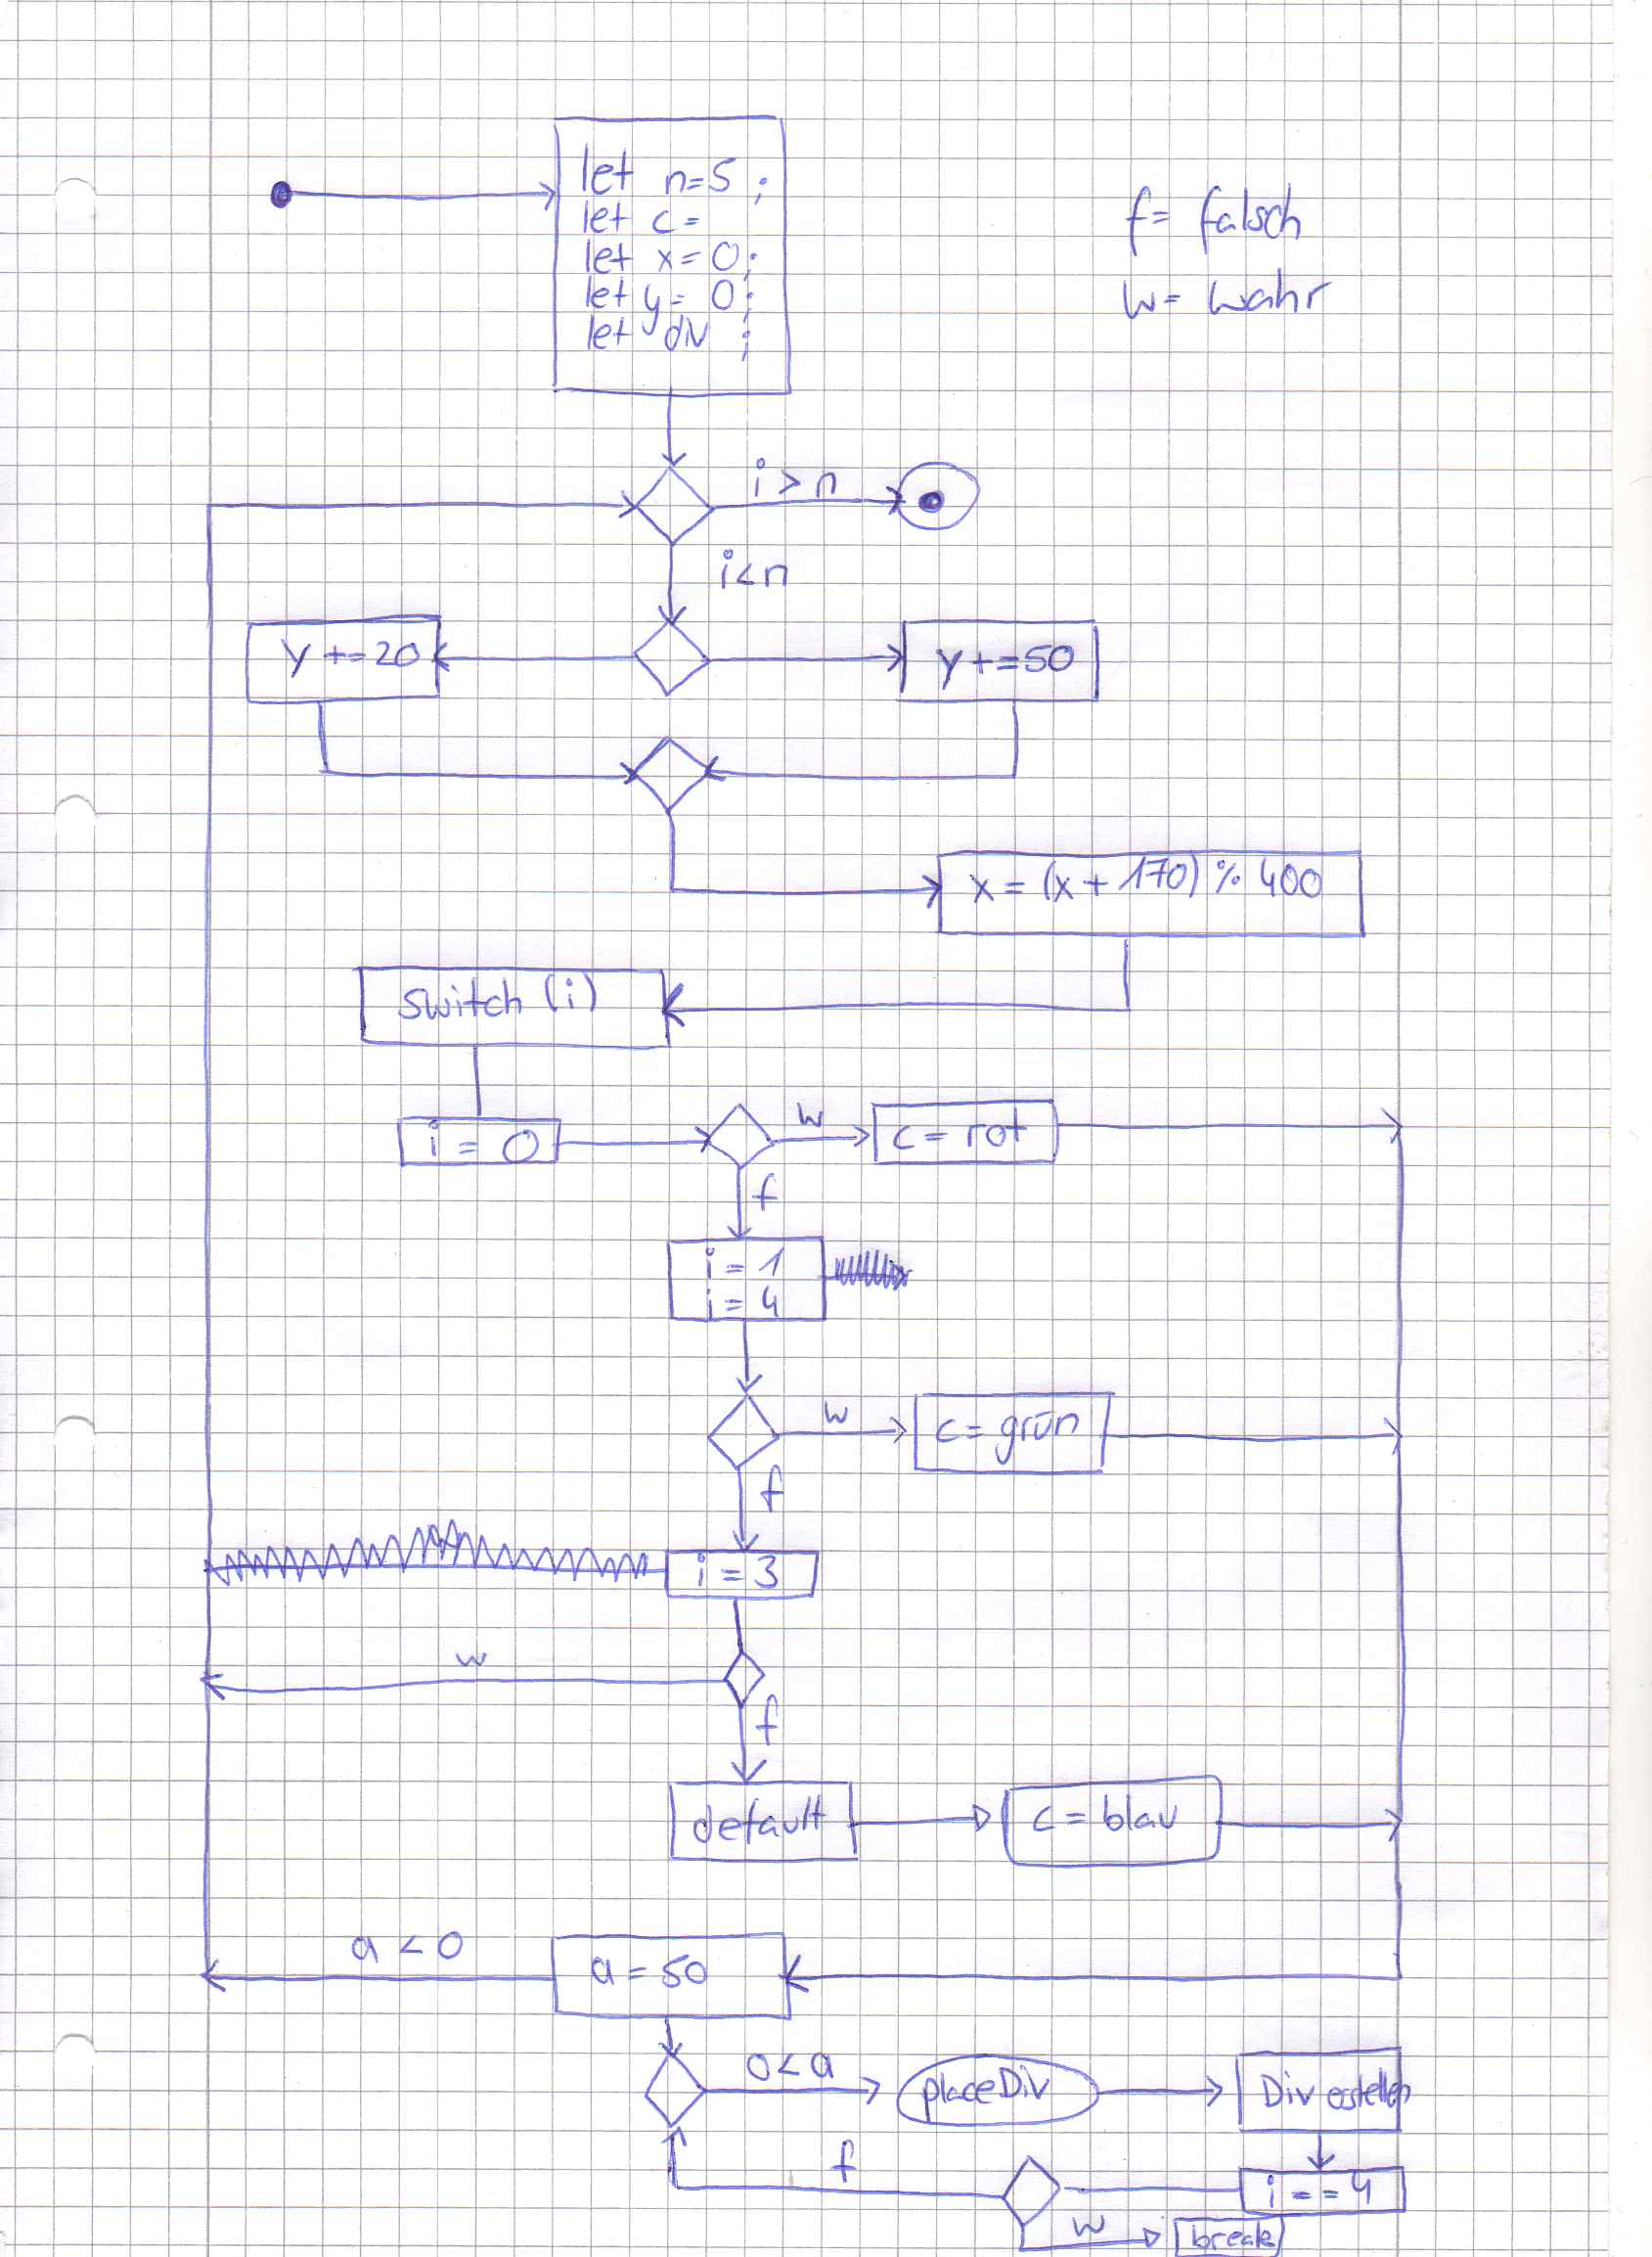 let n=5 ;
let c =
let x = 0;
let y = 0;
let div ;
f= falsch
w= wahr
i > n
i<n
y +=20
y +=50
x = (x + 170) % 400
switch (i)
i = 0
w
c = rot
f
i = 1
i = 4
w
c = grün
f
i = 3
w
f
default
c = blau
a < 0
a = 50
0 < a
placeDiv
Div erstellen
f
i == 4
w
break